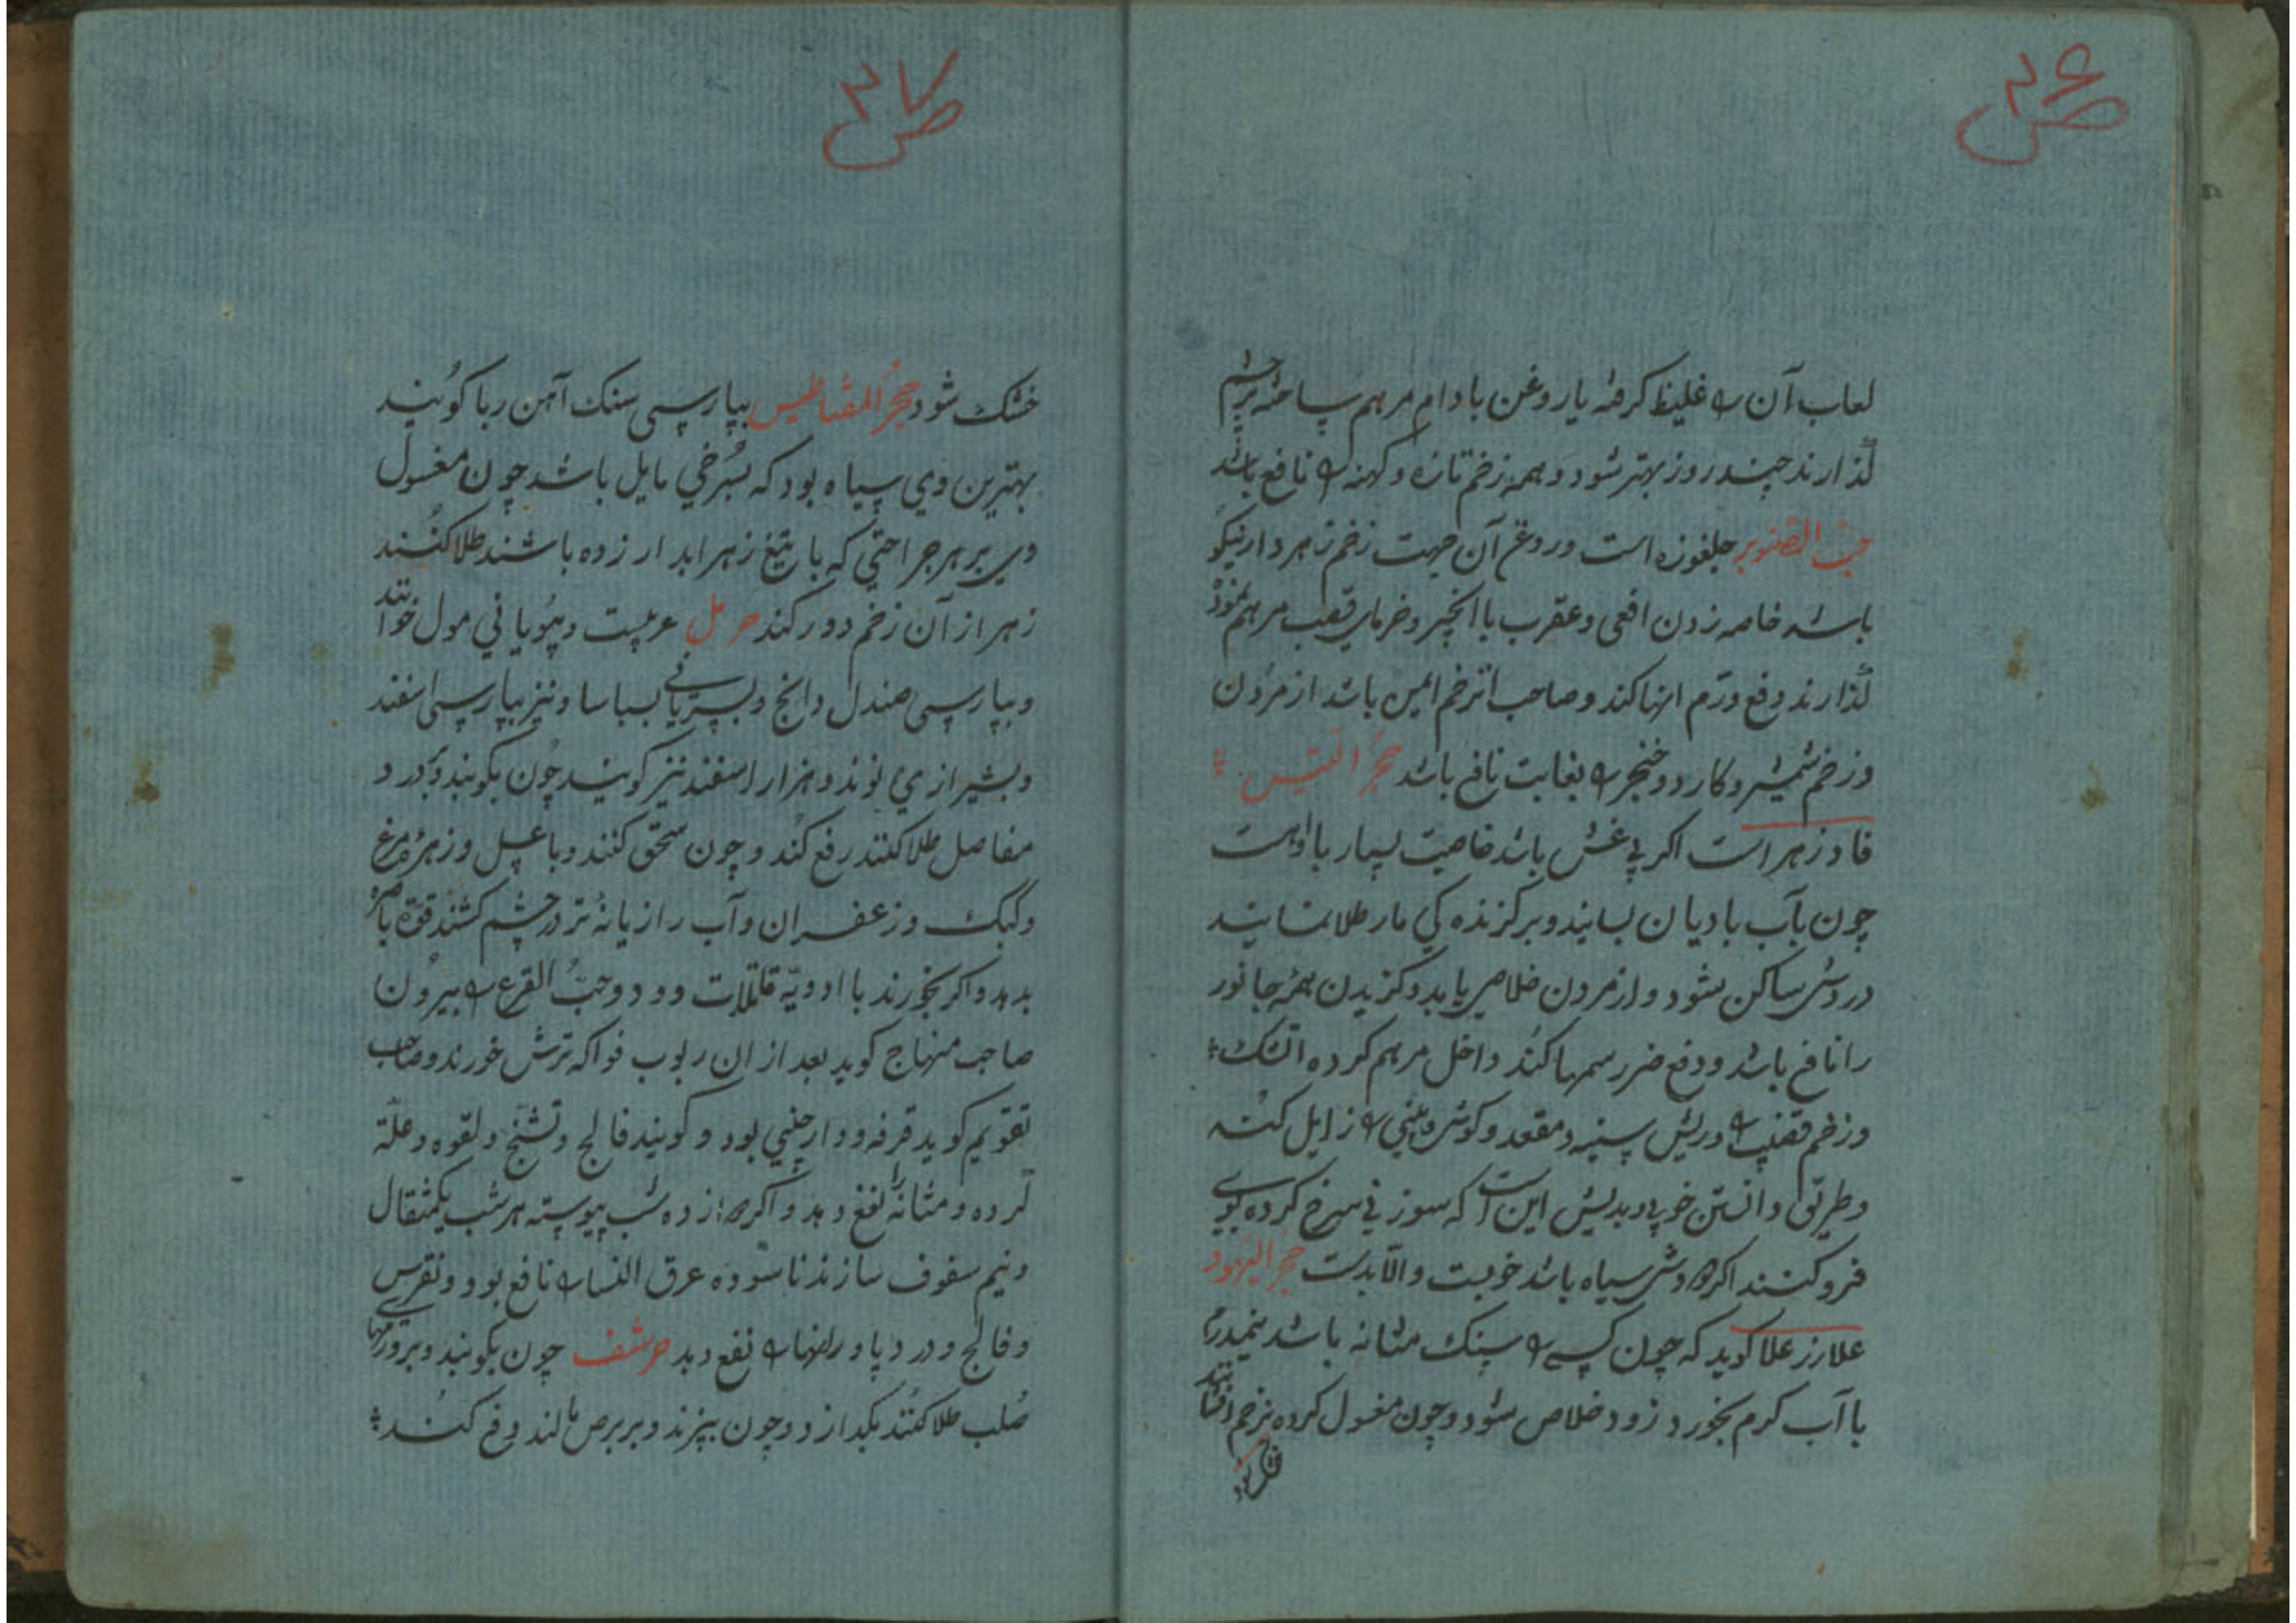 ص ۳۶
لعاب آن را غلیظ کرفته یا روغن بادام مرهم ساخته بزخم
گذارند چند روز بهتر شود و همه زخم تازه و کهنه را نافع باشد
حبّ الصّنوبر جلغوزه است و روغن آن جهت زخم زهردار نیکو
باشد خاصه زدن افعی و عقرب با انجیر و خرمای قصب مرهم نموده
گذارند دفع ورم انها کند و صاحب انزخم ایمن باشد از مردن
وزخم شمیشر و کارد و خنجر را بغایت نافع باشد حجر التیس
فادزهر است اکر بی غش باشد خاصیت بسیار با او است
چون بآب بادیان بسایند و بر کزنده کی مار طلا نمایند
دردش ساکن شود و از مردن خلاصی یابد و کزیدن همه جانور
را نافع باشد و دفع ضرر سمها کند داخل مرهم کرده اتشک
وزخم قضیب را و ریش سینه و مقعد و کوش و بینی را زایل کند
و طریق دانستن خوبی و بدیش این است که سوزنی سرخ کرده بوی
فرو کنند اکر دودش سیاه باشد خوبست والا بدست حجر الیهود
کوید که چون کسی را سنک مثانه باشد نیمدرم
با آب کرم بخورد زود خلاص شود و چون مغسول کرده بزخم افشانند
خشک شود
ص ۳۷
خشک شود حجر المقناطیس بپارسی سنک آهن ربا کویند
بهترین وی سیاه بود که بسرخی مایل باشد چون مغسول
وی بر هر جراحتی که با تیغ زهر ابدار زده باشند طلا کنند
زهر از آن زخم دور کند حرمل عربیست و بیونانی مولی خوانند
و بپارسی صندل دانج و بسریانی بسباسا و نیز بپارسی اسفند
و بشیرازی لوند و هزار اسفند نیز کویند چون بکوبند و بدرد
مفاصل طلا کنند رفع کند و چون سحق کنند و با عسل و زهره مرغ
و کبک و زعفران و آب رازیانه تر در چشم کشند قوة باصره
بدهد و اکر بخورند با ادویه قاتلات دود و حبّ القرع را بیرون
صاحب منهاج کوید بعد از ان ربوب فواکه ترش خورند و صاحب
تقویم کوید قرفه و دارچینی بود و کویند فالج و تشنج و لقوه و علّة
کرده و مثانه را نفع دهد و اکر دوازده شب پیوسته هر شب یکمثقال
و نیم سفوف سازند ناسوده عرق النسا را نافع بود و نقرس
و فالج و درد پا و رانها را نفع دهد حرشف چون بکوبند و بر ورمهای
صُلب طلا کنند بکدازد و چون بپزند و بر برص مالند دفع کند